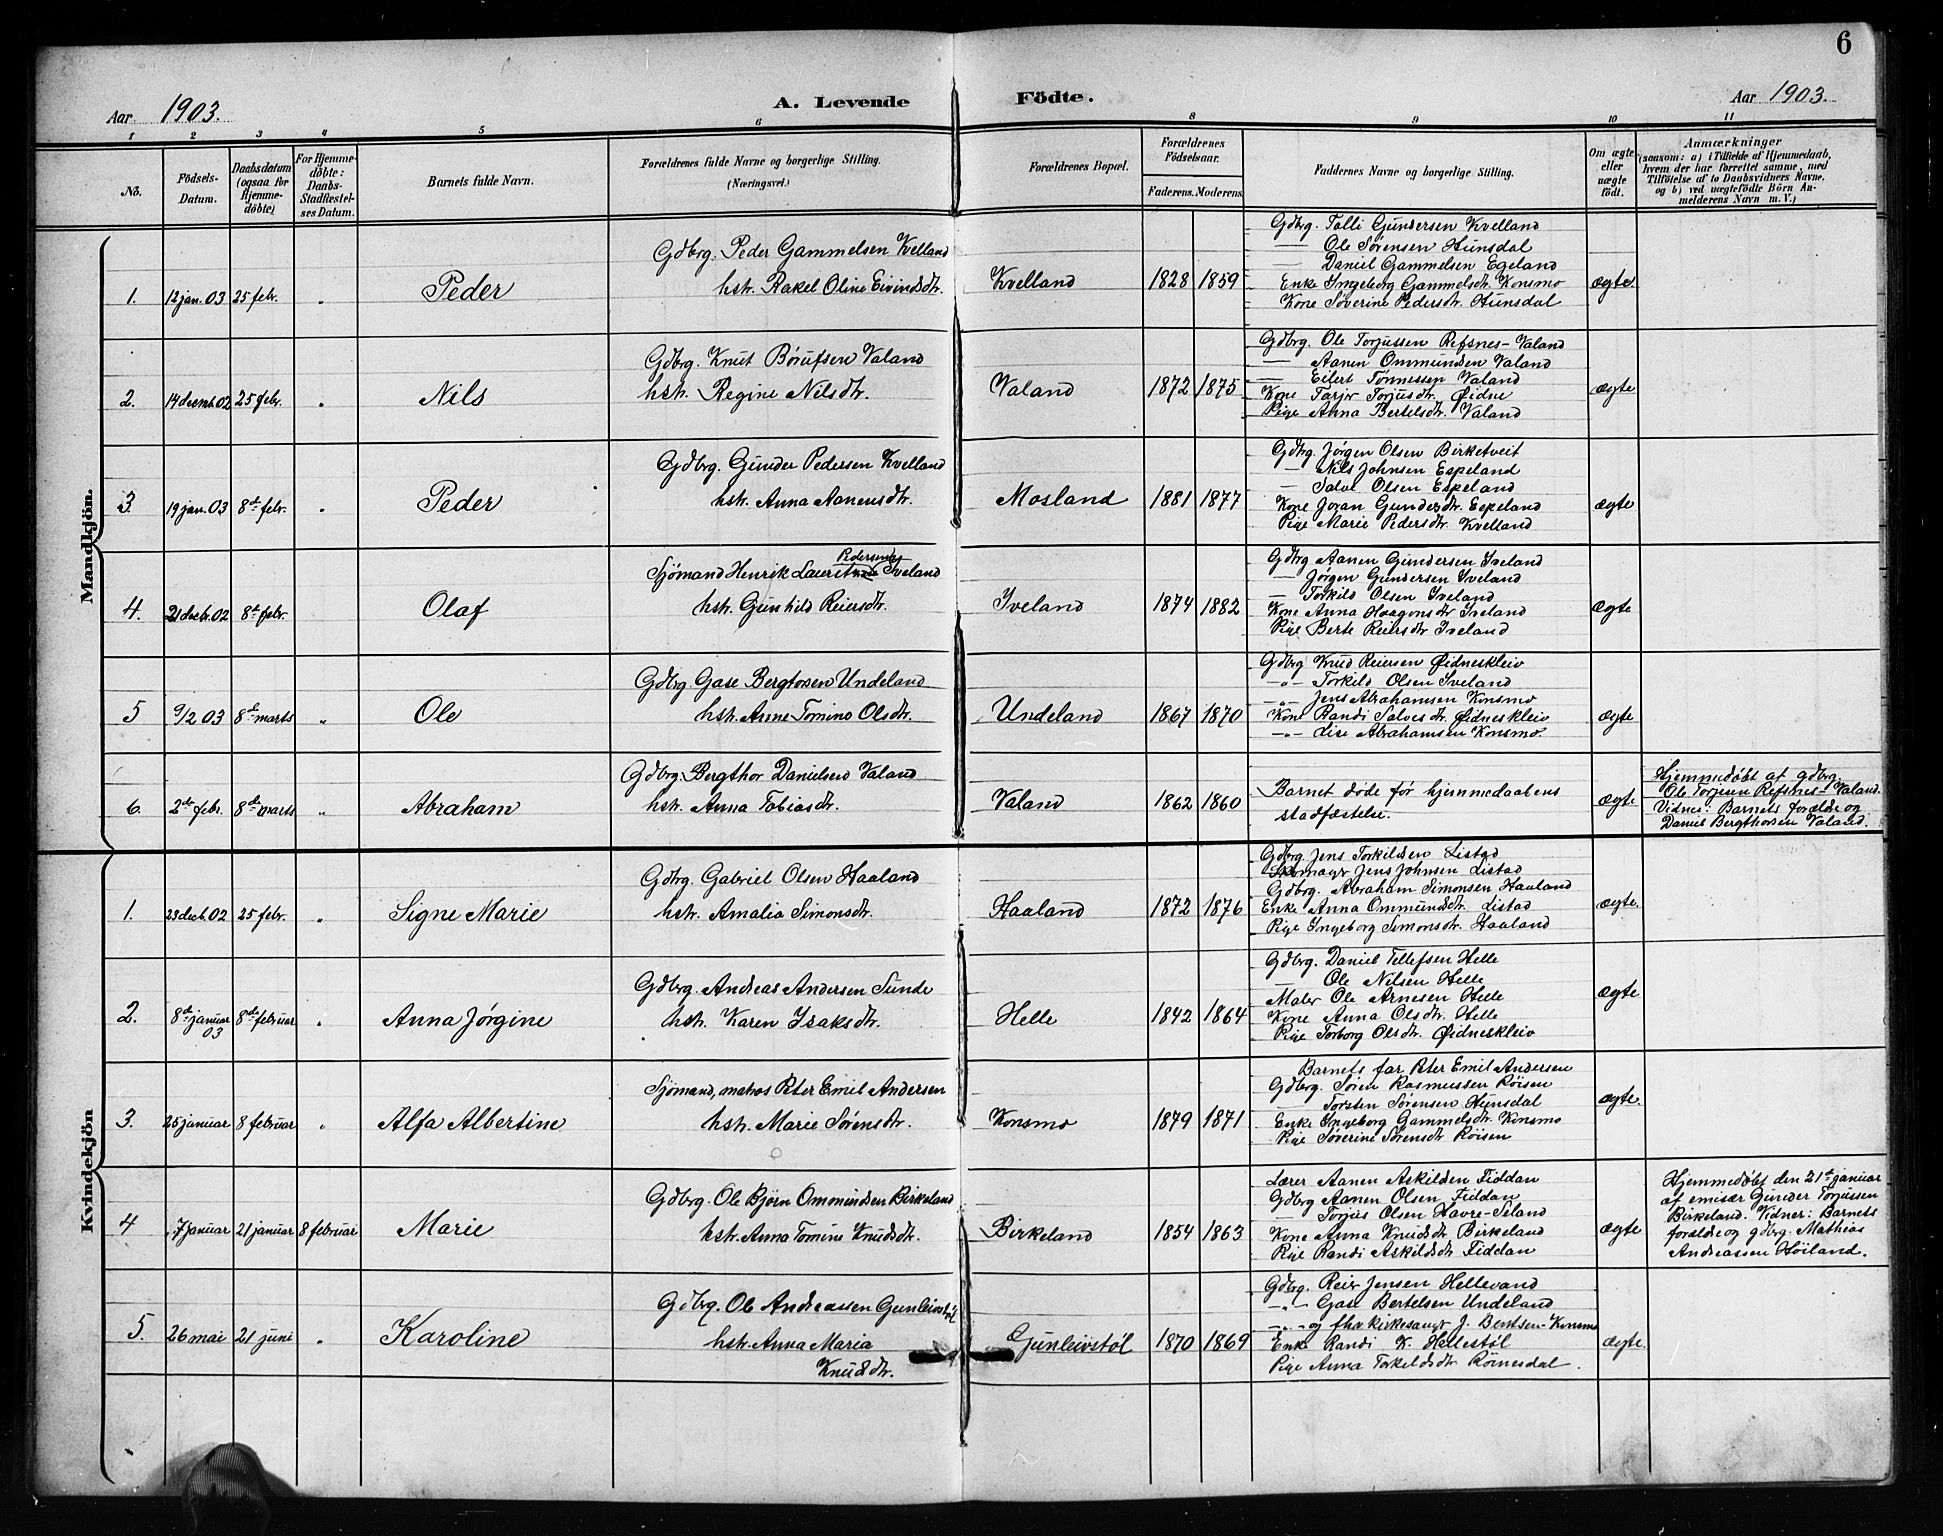 6
Aar 1903.
A. Levende Födte.
Aar 1903.
1 2 3 4 5 6 8 9 10 11
No.
Födsels-
Datum.
Daabsdatum
(ogsaa for
Hjemme-
döbte)
For Hjemme-
döbte:
Daabs-
Stadfæstel-
ses Datum.
Barnets fulde Navn.
Forældrenes fulde Navne og borgerlige Stilling.
(Næringsvei.)
Forældrenes Bopæl.
Forældrenes
Födselsaar.
Faderens. Moderens.
Faddernes Navne og borgerlige Stilling.
Om ægte
eller
uægte
födt.
Anmærkninger
(saasom: a) i Tilfælde af Hjemmedaab,
hvem der har forrettet samme, med
Tilföielse af to Daabsvidners Navne,
og b) ved uægtefödte Börn An-
melderens Navn m. V.)
Mandkjön.
1. 12 jan. 03 25 febr. " Peder
Gdbrg. Peder Gammelsen Kvelland
hstr. Rakel Oline Eivindsdtr.
Kvelland 1828 1859
Gdbrg. Talli Gundersen Kvelland
— Ole Sørensen Hunsdal
— Daniel Gammelsen Egeland
Enke Ingeborg Gammelsdtr. Konsmo
Kone Severine Pedersdtr. Hunsdal
ægte
2. 14 decmb. 02 25 febr. " Nils
Gdbrg. Knut Børufsen Valand
hstr. Regine Nilsdtr.
Valand 1872 1875
Gdbrg. Ole Torjussen Refsnes-Valand
— Aanen Ommundsen Valand
— Eilert Tønnessen Valand
Kone Tarjer Torjusdtr. Øidne
Pige Anna Bertelsdtr. Valand
ægte
3. 19 jan. 03 8de febr. " Peder
Gdbrg. Gunder Pedersen Kvelland
hstr. Anna Aanensdtr.
Mosland 1881 1877
Gdbrg. Jørgen Olsen Birketveit
— Nils Johnsen Espeland
— Salve Olsen Espeland
Kone Joran Gundersdtr. Espeland
Pige Marie Pedersdtr. Kvelland
ægte
4. 21 decb. 02 8de febr. Olaf
Pedersen
Sjømand Henrik Iveland
hstr. Gunhild Reiersdtr.
Iveland 1874 1882
Gdbrg Aanen Gundersen Iveland
— Jørgen Gundersen Iveland
— Torkild Olsen Iveland
Kone Anna Haagensdtr Iveland
Pige Berte Reiersdtr Iveland
ægte
5 9/2 03 8de marts " Ole
Gdbrg. Gase Bergtosen Undeland
hstr. Anne Tomine Olsdtr.
Undeland 1867 1870
Gdbrg Knud Reiersen Øidneskleiv
—"— Torkild Olsen Iveland
—"— Jens Abrahamsen Konsmo
Kone Randi Salvesdtr. Øidneskleiv
—"— Lise Abrahamsen Konsmo.
ægte
6. 2de febr. 8de marts " Abraham
Gdbrg. Bergthor Danielsen Valand
hstr. Anna Tobiasdtr.
Valand 1862 1860
Barnet døde før hjemmedaabens
stadfæstelse.
ægte
Hjemmedøbt af gdbrg.
Ole Torjusen Refsnes-Valand.
Vidner: Barnets forældre og
Daniel Bergthorsen Valand.
Kvindekjön
1. 23 decb. 02 25 febr. " Signe Marie
Gdbrg. Gabriel Olsen Haaland
hstr. Amalia Simonsdtr.
Haaland 1872 1876
Gdbrg. Jens Torkildsen Listad
Skomager Jens Johnsen Listad
Gdbrg. Abraham Simonsen Haaland
Enke Anna Ommundsdtr. Listad
Pige Ingeborg Simonsdtr. Haaland
ægte.
2. 8de januar 03 8de februar " Anna Jørgine
Gdbrg. Andreas Andersen Sunde
hstr. Karen Isaksdtr.
Helle 1842 1864
Gdbrg. Daniel Tellefsen Helle
— Ole Nilsen Helle
Maler Ole Arnesen Helle
Kone Anna Olsdtr. Helle
Pige Torborg Olsdtr. Øidneskleiv
ægte
3. 25 januar 8 februar " Alfa Albertine
Sjømand, matros Peter Emil Andersen
hstr. Marie Sørensdtr.
Konsmo 1879 1871
Barnets far Peter Emil Andersen
Gdbrg. Søren Rasmussen Røisen
— Torsten Sørensen Hunsdal
Enke Ingeborg Gammelsdtr. Konsmo
Pige Søverine Sørensdtr Røisen
ægte.
4 7 januar 21 januar 8 februar Marie
Gdbrg. Ole Bjørn Ommundsen Birkeland
hstr. Anna Tomine Knudsdtr.
Birkeland 1854 1863
Lærer Aanen Askildsen Fiddan
Gdbrg Aanen Olsen Fiddan
— Torjus Olsen Havre-Iland
Kone Anna Knudsdtr Birkeland
Pige Randi Askildsdtr Fiddan
ægte
Hjemmedøbt den 21de januar
af emisær Gunder Torjussen
Birkeland. Vidner: Barnets
forældre og gdbrg. Mathias
Andreassen Høiland.
5. 26 mai 21 juni " Karoline
Gdbrg. Ole Andreassen Gunleivstøl
hstr. Anna Maria
Knudsdtr.
Gunleivstøl 1870 1869
Gdbrg. Reier Jensen Hellevand
—"— Gase Bertelsen Undeland
—"— og fhv. kirkesanger J. Berntsen-Konsmo
Enke Randi K. Hellestøl
Pige Anna Torkildsdtr. Rømesdal.
ægte.